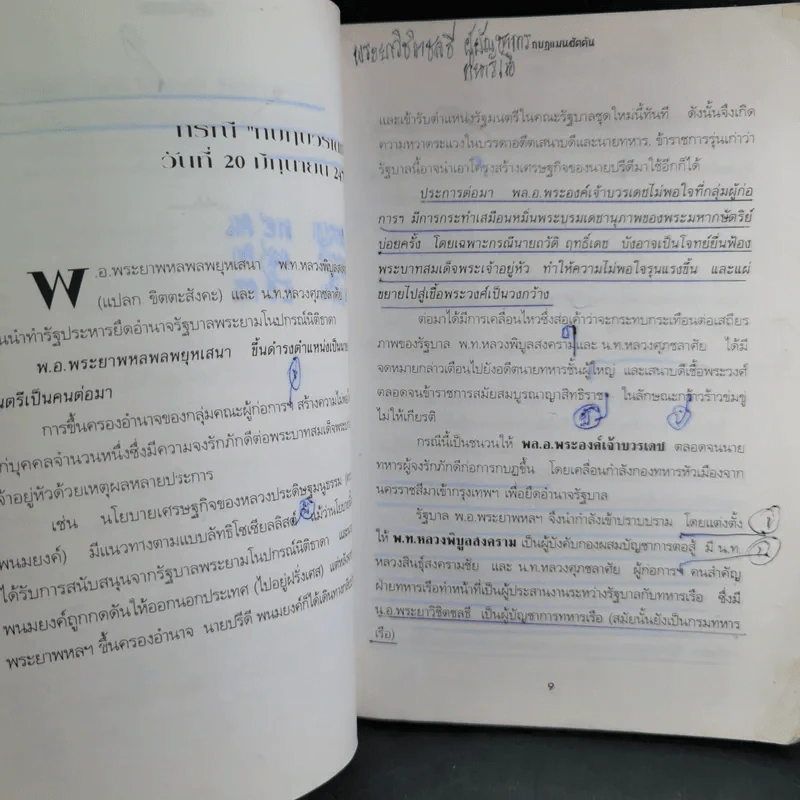 กรณี "กบฏบวรเดช
วันที่ 20 มิถุนายน 24
พ.อ.พระยาพหลพลพยุหเสนา พ.ท.หลวงพิบูลสง
(แปลก ขิตตะสังคะ) และ น.ท.หลวงศุภชลาศัย
นนำทำรัฐประหารยึดอำนาจรัฐบาลพระยามโนปกรณ์นิติธาดา
พ.อ.พระยาพหลพลพยุหเสนา ขึ้นดำรงตำแหน่งเป็นนาย
นตรีเป็นคนต่อมา
การขึ้นครองอำนาจของกลุ่มคณะผู้ก่อการฯ สร้างความไม่พอ
ก่บุคคลจำนวนหนึ่งซึ่งมีความจงรักภักดีต่อพระบาทสมเด็จพระ
จ้าอยู่หัวด้วยเหตุผลหลายประการ
เช่น นโยบายเศรษฐกิจของหลวงประดิษฐมนูธรรม
พนมยงค์) มีแนวทางตามแบบลัทธิโซเชียลลิสต์ แม้ว่านโยบาย
ได้รับการสนับสนุนจากรัฐบาลพระยามโนปกรณ์นิติธาดา และ
พนมยงค์ถูกกดดันให้ออกนอกประเทศ (ไปอยู่ฝรั่งเศส) แต่หลัง
พระยาพหลฯ ขึ้นครองอำนาจ นายปรีดี พนมยงค์ก็ได้เดินทาง
พระยาวิชิตชลธี ผู้บัญชาการ
ทหารเรือ
กบฏแมนฮัตตัน
และเข้ารับตำแหน่งรัฐมนตรีในคณะรัฐบาลชุดใหม่นี้ทันที ดังนั้นจึงเกิด
ความหวาดระแวงในบรรดาอดีตเสนาบดีและนายทหาร, ข้าราชการรุ่นเก่าว่า
รัฐบาลนี้อาจนำเอาโครงสร้างเศรษฐกิจของนายปรีดีมาใช้อีกก็ได้
ประการต่อมา พล.อ.พระองค์เจ้าบวรเดชไม่พอใจที่กลุ่มผู้ก่อ
การฯ มีการกระทำเสมือนหมิ่นพระบรมเดชานุภาพของพระมหากษัตริย์
บ่อยครั้ง โดยเฉพาะกรณีนายถวัติ ฤทธิ์เดช บังอาจเป็นโจทย์ยื่นฟ้อง
พระบาทสมเด็จพระเจ้าอยู่หัว ทำให้ความไม่พอใจรุนแรงขึ้น และแผ่
ขยายไปสู่เชื้อพระวงศ์เป็นวงกว้าง
ต่อมาได้มีการเคลื่อนไหวซึ่งส่อเค้าว่าจะกระทบกระเทือนต่อเสถียร
ภาพของรัฐบาล พ.ท.หลวงพิบูลสงครามและ น.ท.หลวงศุภชลาศัย ได้มี
จดหมายกล่าวเตือนไปยังอดีตนายทหารชั้นผู้ใหญ่ และเสนาบดีเชื้อพระวงศ์
ตลอดจนข้าราชการสมัยสมบูรณาญาสิทธิราช ในลักษณะกร้าวร้าวข่มขู่
ไม่ให้เกียรติ
กรณีนี้เป็นชนวนให้ พล.อ.พระองค์เจ้าบวรเดช ตลอดจนนาย
ทหารผู้จงรักภักดีก่อการกบฏขึ้น โดยเคลื่อนกำลังกองทหารหัวเมืองจาก
นครราชสีมาเข้ากรุงเทพฯ เพื่อยึดอำนาจรัฐบาล
รัฐบาล พ.อ.พระยาพหลฯ จึงนำกำลังเข้าปราบปราม โดยแต่งตั้ง
ให้ พ.ท.หลวงพิบูลสงคราม เป็นผู้บังคับกองผสมบัญชาการต่อสู้ มี น.ท.
หลวงสินธุ์สงครามชัย และ น.ท.หลวงศุภชลาศัย ผู้ก่อการฯ คนสำคัญ
ฝ่ายทหารเรือทำหน้าที่เป็นผู้ประสานงานระหว่างรัฐบาลกับทหารเรือ ซึ่งมี
น.อ.พระยาวิชิตชลธี เป็นผู้บัญชาการทหารเรือ (สมัยนั้นยังเป็นกรมทหาร
เรือ)
9